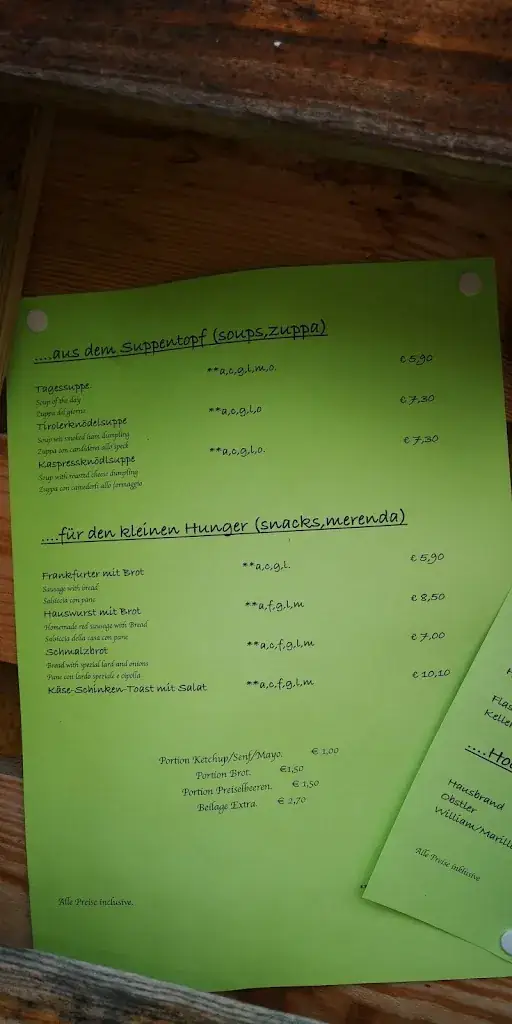 ....aus dem Suppentopf (soups,zuppa)
Tagessuppe **a,c,g,l,m,o. € 5,90
Soup of the day
Zuppa del giorno
Tirolerknödelsuppe **a,c,g,l,o € 7,30
Soup wit smoked ham dumpling
Zuppa con canederli allo speck
Kaspressknödlsuppe **a,c,g,l,o. € 7,30
Soup with roasted cheese dumpling
Zuppa con allo formaggio
....für den kleinen Hunger (snacks,merenda)
Frankfurter mit Brot **a,c,g,l. € 5,90
Sausage with bread
Salsiccia con pane
Hauswurst mit Brot **a,f,g,l,m € 8,50
Homemade red sausage with Bread
Salsiccia della casa con pane
Schmalzbrot **a,c,f,g,l,m € 7,00
Bread with spezial lard and onions
Pane con lardo speziale e cipolla
Käse-Schinken-Toast mit Salat **a,c,f,g,l,m € 10,10
Portion Ketchup/Senf/Mayo. € 1,00
Portion Brot. €1,50
Portion Preiselbeeren. € 1,50
Beilage Extra. € 2,70
Alle Preise inclusive.
Flas
Keller
....Ho
Hausbrand
Obstler
William/Marille
Alle Preise inklusive